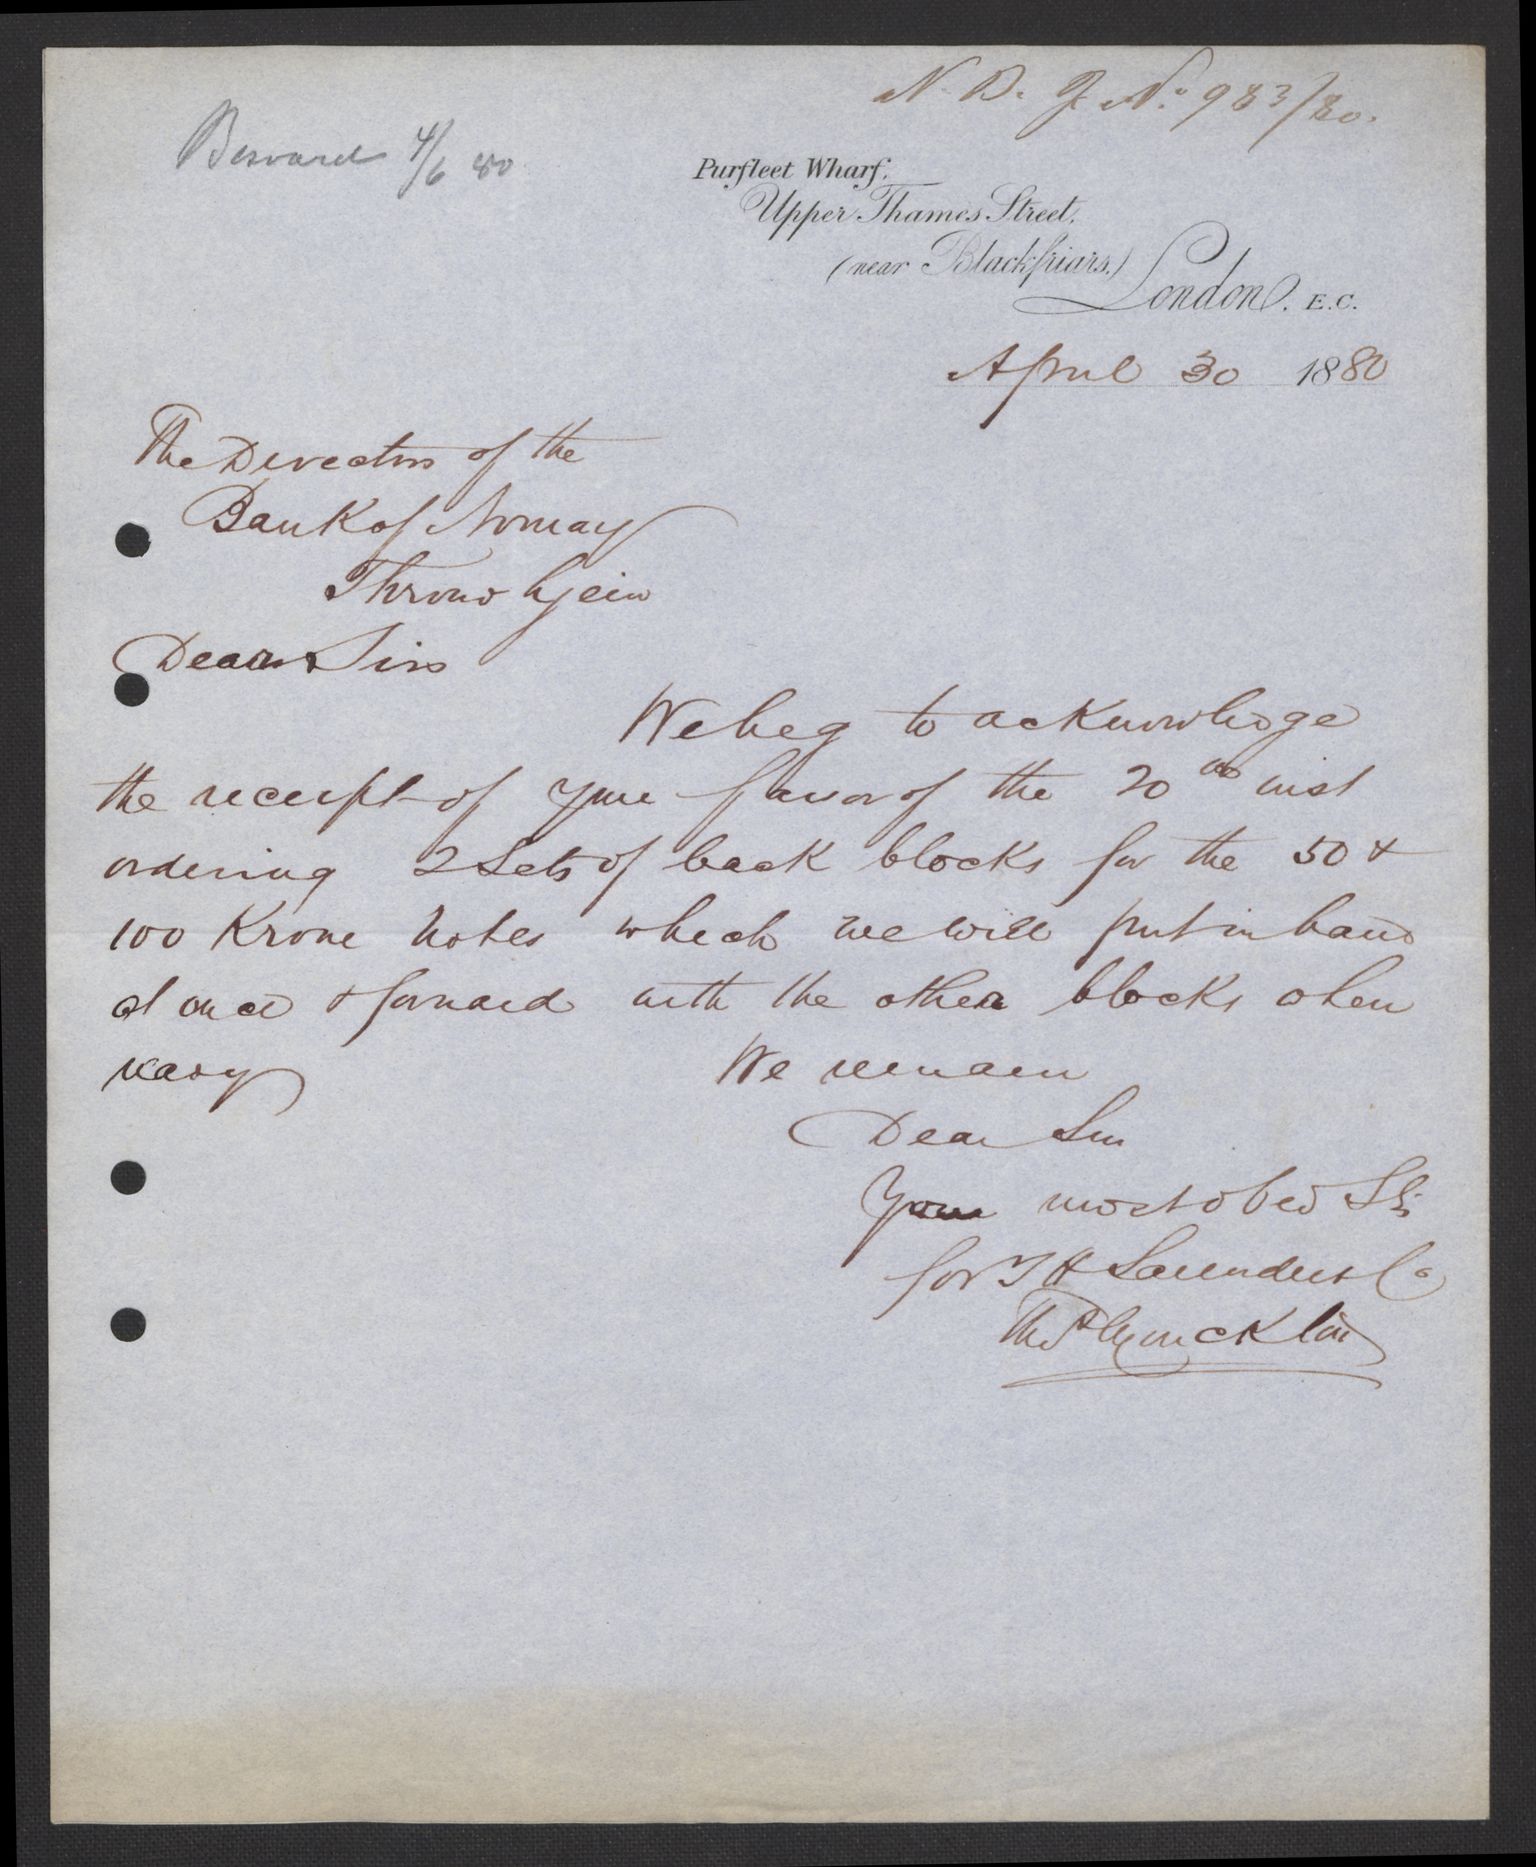 N. B. J. No. 983/80.
Besvaret 4/6 80
Purfleet Wharf,
Upper Thames Street,
(near Blackfriars,)
London, E.C.
April 30 1880
The Directors of the
Bank of Norway
Throndhjein
Dear Sirs
We beg to acknowledge
the receipt of your favor of the 20th inst
ordering 2 Sets of back blocks for the 50 &
100 Krone Notes which we will put in hand
at once & forward with the other blocks when
ready
We remain
Dear Sirs
Your most obed Sts
for T H Saunders & Co